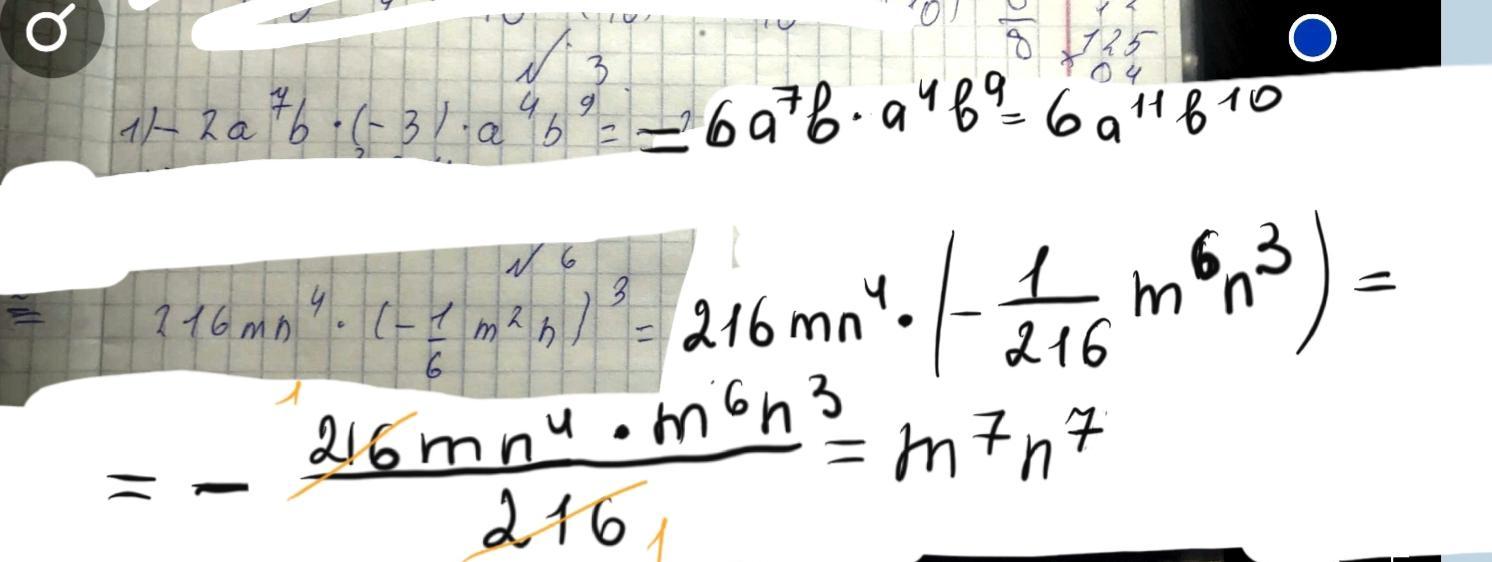 125
04
√ 3
1) - 2a⁷b · (-3) · a⁴b⁹ = = 6a⁷b · a⁴b⁹ = 6a¹¹b¹⁰
√ 6
216mn⁴ · (-1/6 m²n)³ = 216mn⁴ · (-1/216 m⁶n³) =
= - 216mn⁴ · m⁶n³ / 216 = m⁷n⁷
1
1